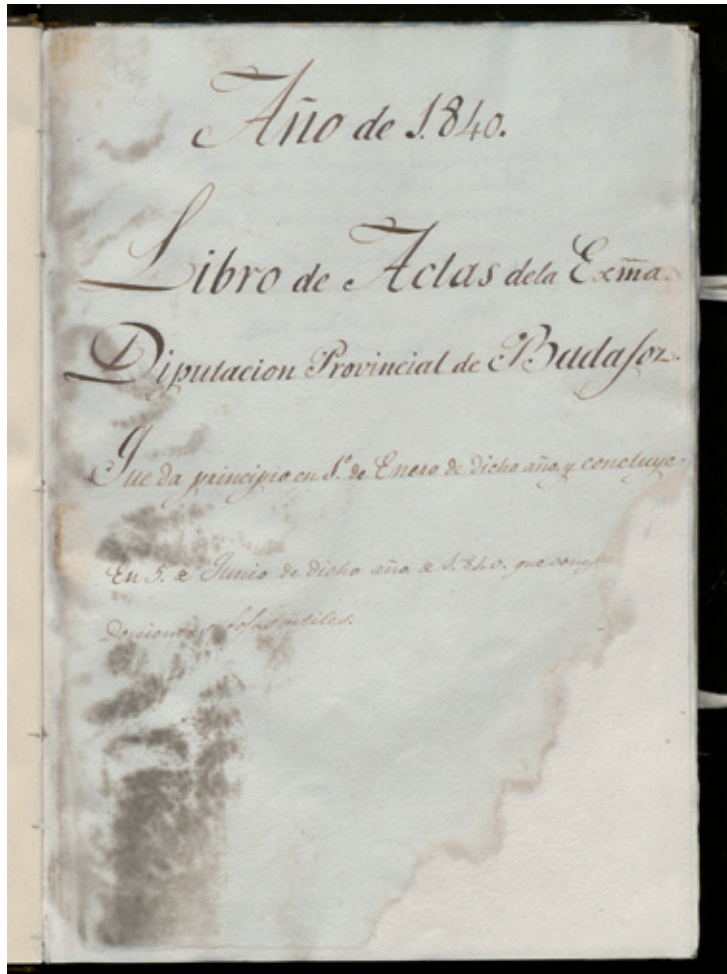 Año de 1.840.
Libro de Actas dela Exm̃a.
Diputacion Provincial de Badajoz.
Que da principio en 1º de Enero de dicho año y concluye
En 5. de Junio de dicho año de 1.840. que
utiles.